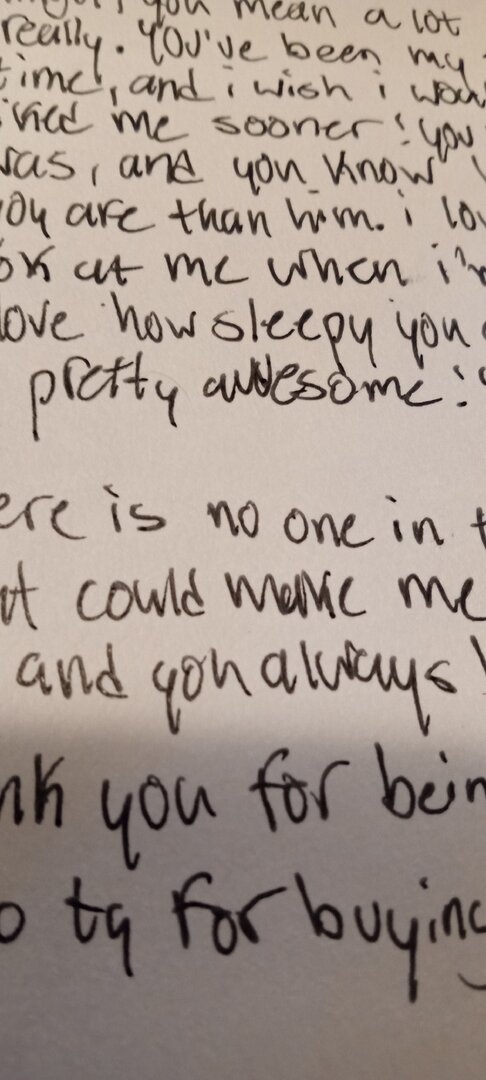 you mean a lot
really. You've been my
time, and i wish i
me sooner! you
and you know
you are than him. i
at me when
love how sleepy you
pretty awesome!
is no one in
could make me
and you always
you for
ty for buying